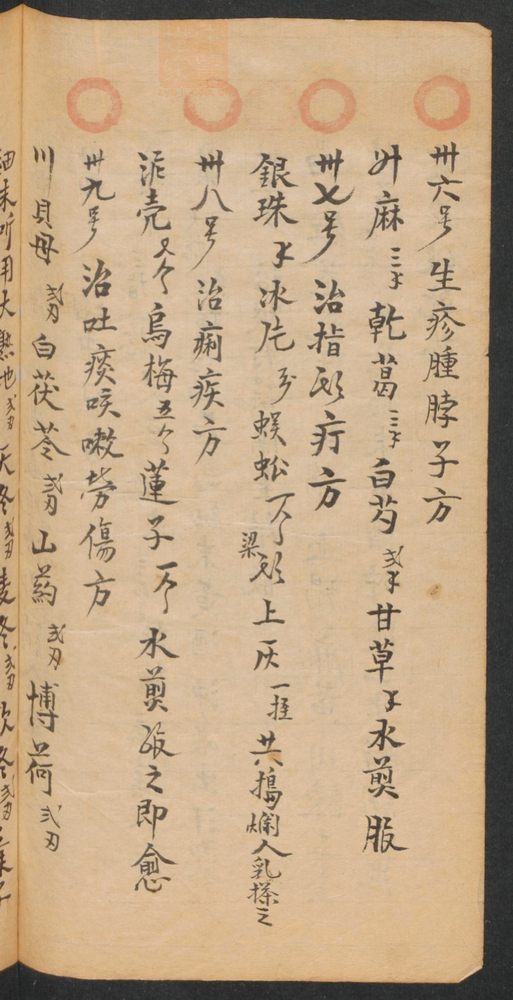 卅六号生疹腫脖子方
升麻三才乾葛三才白芍弍才甘草才水煎服
卅七号治指疔方
銀珠才冰片蜈蚣一个梁上灰共搗爛人乳搽之
卅八号治痢疾方
壳烏梅五个蓮子水煎之即愈
卅九号治吐痰咳嗽勞傷方
川貝母白茯苓山葯弍刃博荷弍刃
細末听用大熟也天冬麦冬欠冬